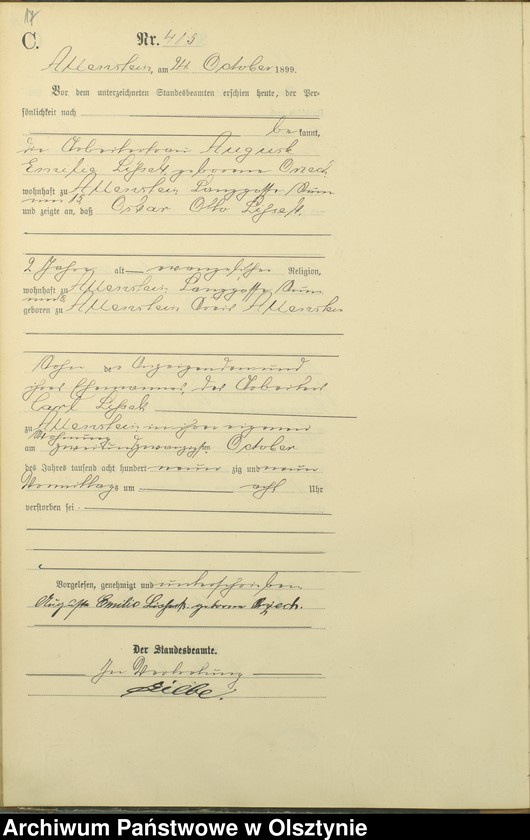 C. Nr. 415
Allenstein, am 24. October 1899.
Vor dem unterzeichneten Standesbeamten erschien heute, der Per-
sönlichkeit nach
bekannt,
die Arbeiterfrau August
Emilie Lissek geborene
wohnhaft zu Allenstein Langgasse
und zeigte an, daß Oskar Otto Lissek
2 Jahre alt evangelischer Religion,
wohnhaft zu Allenstein Langgasse
geboren zu Allenstein Kreis Allenstein
Sohn der Anzeigenden und
ihres Ehemannes, des Arbeiters
Carl Lissek
zu Allenstein in ihrer eigenen
Wohnung
am zweiundzwanzigsten October
des Jahres tausend acht hundert neunzig und neun
Vormittags um acht Uhr
verstorben sei
Vorgelesen, genehmigt und unterschrieben
Auguste Emilie geborene
Der Standesbeamte.
In Vertretung
Archiwum Państwowe w Olsztynie